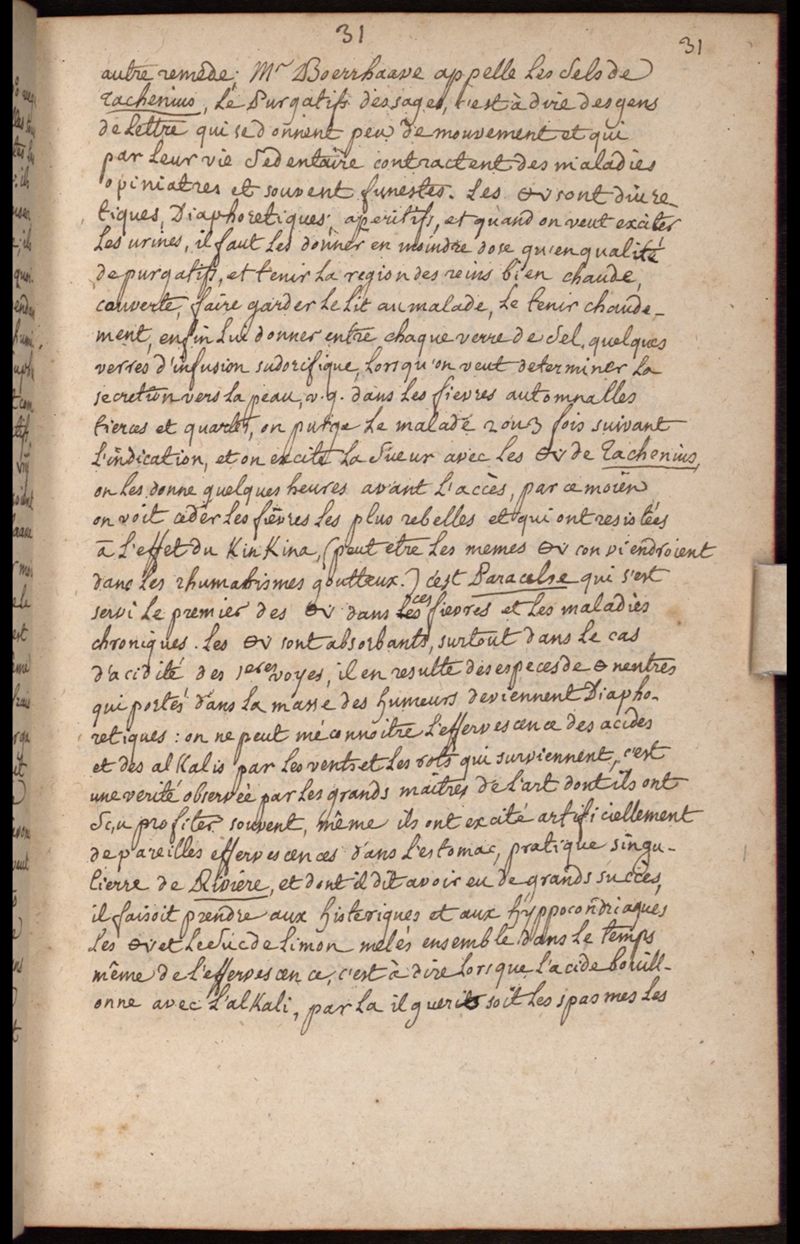 31
31
autre remede; Mr Boerrhaave appelle les Sels de
Tachenius, le Purgatifs des sages, c'est à dire des gens
de Lettre qui se donnent peu de mouvement et qui
par leur vie Sedentaire contractent des maladies
opiniatres et souvent funestes. Les 🜔 sont diure
tiques, Diaphoretiques, aperitifs, et quand on veut exciter
les urines, il faut les donner en moindre dose qu'en qualité
de purgatifs, et tenir la region des reins bien chaude,
couverte, faire garder le lit au malade, le tenir chaude-
ment, enfin lui donner entre chaque verre de Sel, quelques
verres d'infusion sudorifique, lorsqu'on veut determiner la
secretion vers la peau, v.g. dans les fievres automnalles
tierces et quartes, on purge le malade 2 ou 3 fois suivant
l'indication, et on excite la Sueur avec les 🜔 de Tachenius,
on les donne quelques heures avant l'accès, par ce moïen
on voit ceder les fiévres les plus rebelles et qui ont resistées
à l'effet du KinKina, (peut etre les memes 🜔 conviendroient
dans les rhumatismes goutteux.) c'est Paracelse qui s'est
servi le premier des 🜔 dans les ces fievres et les maladies
chroniques. les 🜔 sont absorbants, surtout dans le cas
d'acidité des 1eres voyes, il en resulte des especes de 🜔 neutres
qui portés dans la masse des humeurs deviennent Diapho-
retiques: on ne peut méconnoitre l'effervescence des acides
et des alKalis par les vents et les rots qui surviennent, c'est
une verité observée par les grands maitres de l'art dont ils ont
Sçu profiter souvent, même ils ont excité artificiellement
de pareilles effervescences dans l'estomac, pratique singu-
lierre de Riviere, et dont il dit avoir eu de grands succès,
il faisoit prendre aux histeriques et aux hyppocondriaques
les 🜔 et le Suc de limon melés ensemble dans le temps
même de l'effervescence, c'est à dire lorsque l'acide bouill-
onne avec l'alKali, par la il guerit soit les spasmes les